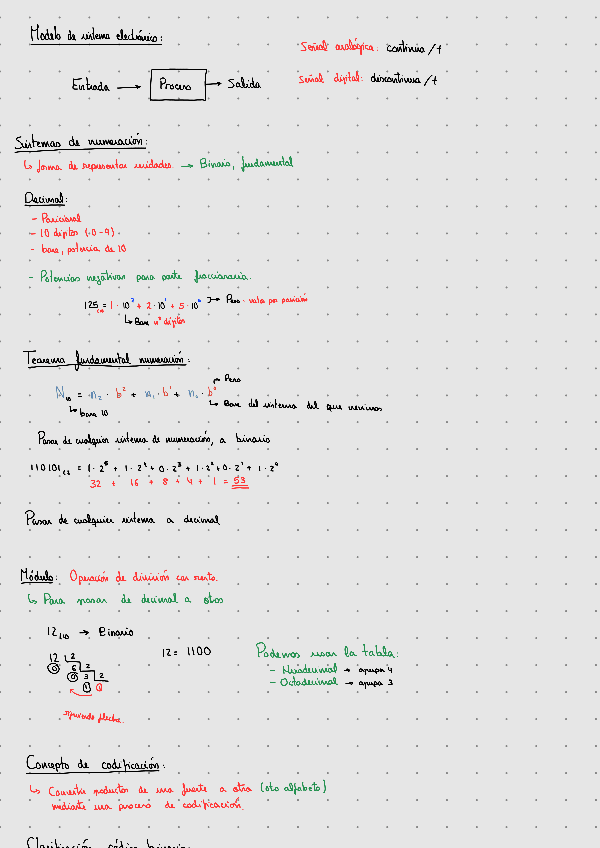 Modelo de sistema electrónico:
Señal analógica: continua /t
Entrada → Proceso → Salida
Señal digital: discontinua /t
Sistemas de numeración:
↳ forma de representar unidades → Binario, fundamental
Decimal:
- Posicional
- 10 dígitos (0-9).
- base, potencia de 10
- Potencias negativas para parte fraccionaria.
125 = 1·10² + 2·10¹ + 5·10⁰ → Peso: valor por posición
↳ Base nº dígitos
Teorema fundamental numeración:
Peso
N₁₀ = n₂ · b² + n₁ · b¹ + n₀ · b⁰
↳ base 10
↳ Base del sistema del que venimos
Pasar de cualquier sistema de numeración, a binario
110101₍₂ = 1·2⁵ + 1·2⁴ + 0·2³ + 1·2² + 0·2¹ + 1·2⁰
32 + 16 + 8 + 4 + 1 = 53
Pasar de cualquier sistema a decimal
Módulo: Operación de división con resto.
↳ Para pasar de decimal a otos
12₍₁₀ → Binario
12 = 1100
12 2
0 6 2
0 3 2
1 1
siguiendo flecha.
Podemos usar la tabla:
- Hexadecimal → agrupa 4
- Octadecimal → agrupa 3
Concepto de codificación:
↳ Convertir productos de una fuente a otra (oto alfabeto)
mediante una proceso de codificación.